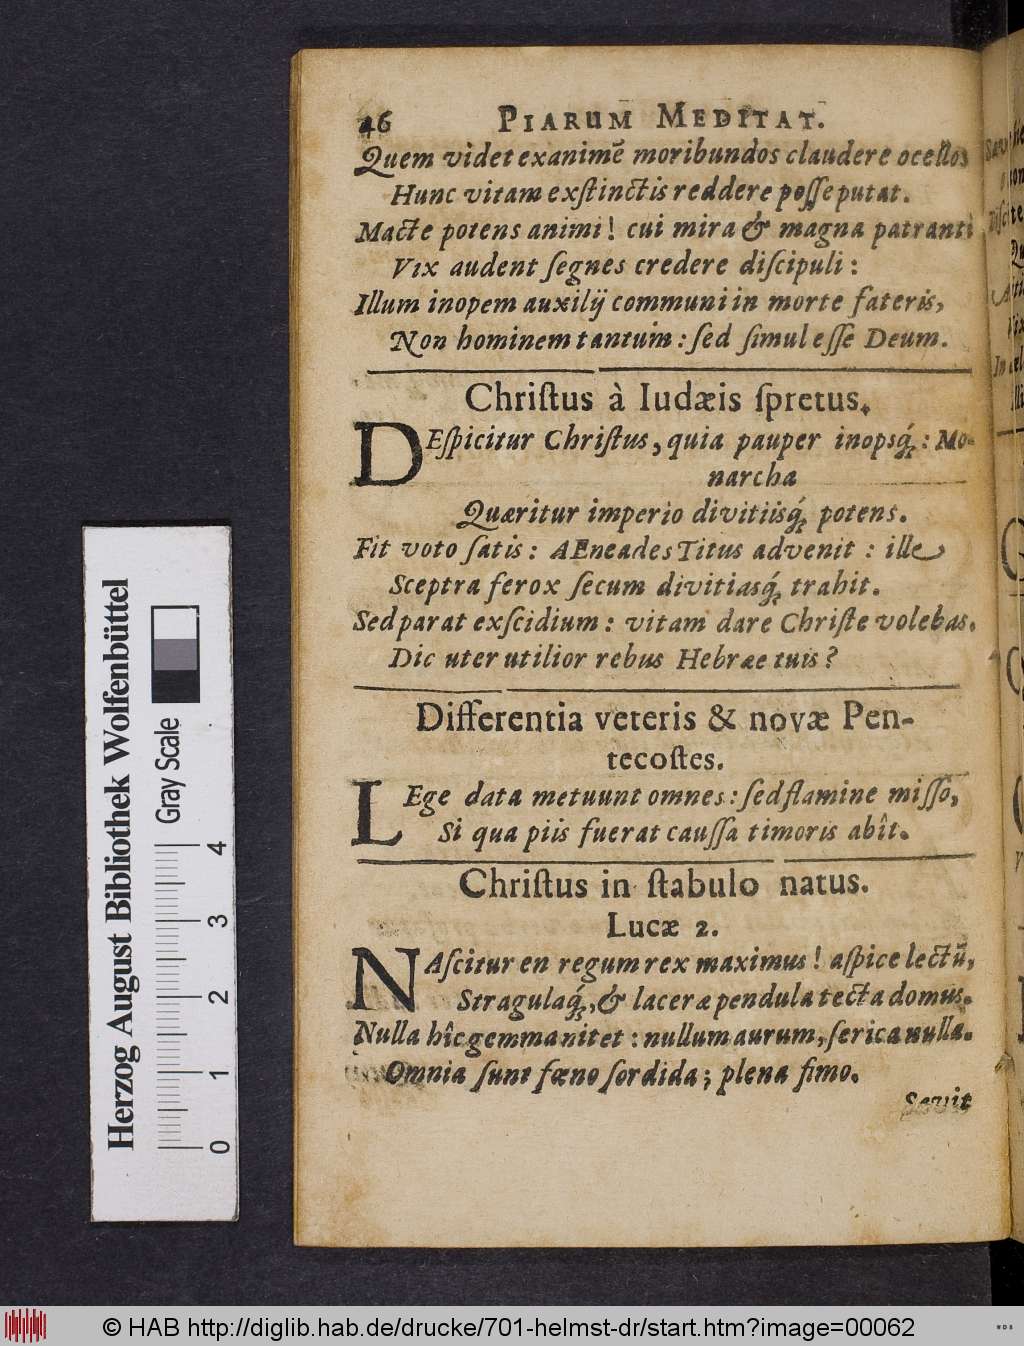 46 PIARUM MEDITAT.
Quem videt exanimẽ moribundos claudere ocellos
Hunc vitam exſtinctis reddere poſſe putat.
Macte potens animi! cui mira & magna patranti
Vix audent ſegnes credere diſcipuli:
Illum inopem auxilij communi in morte fateris,
Non hominem tantum: ſed ſimul eſſe Deum.
Chriſtus à Iudæis ſpretus.
DEſpicitur Chriſtus, quia pauper inopsq́;: Mo-
narcha
Quæritur imperio divitiisq́; potens.
Fit voto ſatis: AEneades Titus advenit: ille
Sceptra ferox ſecum divitiasq́; trahit.
Sed parat exſcidium: vitam dare Chriſte volebas.
Dic uter utilior rebus Hebræe tuis?
Differentia veteris & novæ Pen-
tecoſtes.
LEge data metuunt omnes: ſed flamine miſſo,
Si qua piis fuerat cauſſa timoris abît.
Chriſtus in ſtabulo natus.
Lucæ 2.
NAſcitur en regum rex maximus! aſpice lectũ,
Stragulaq́;, & laceræ pendula tecta domus.
Nulla hîc gemma nitet: nullum aurum, ſerica nulla.
Omnia ſunt fœno ſordida; plena fimo.
Servit
Herzog August Bibliothek Wolfenbüttel
Gray Scale
0 1 2 3 4
© HAB http://diglib.hab.de/drucke/701-helmst-dr/start.htm?image=00062